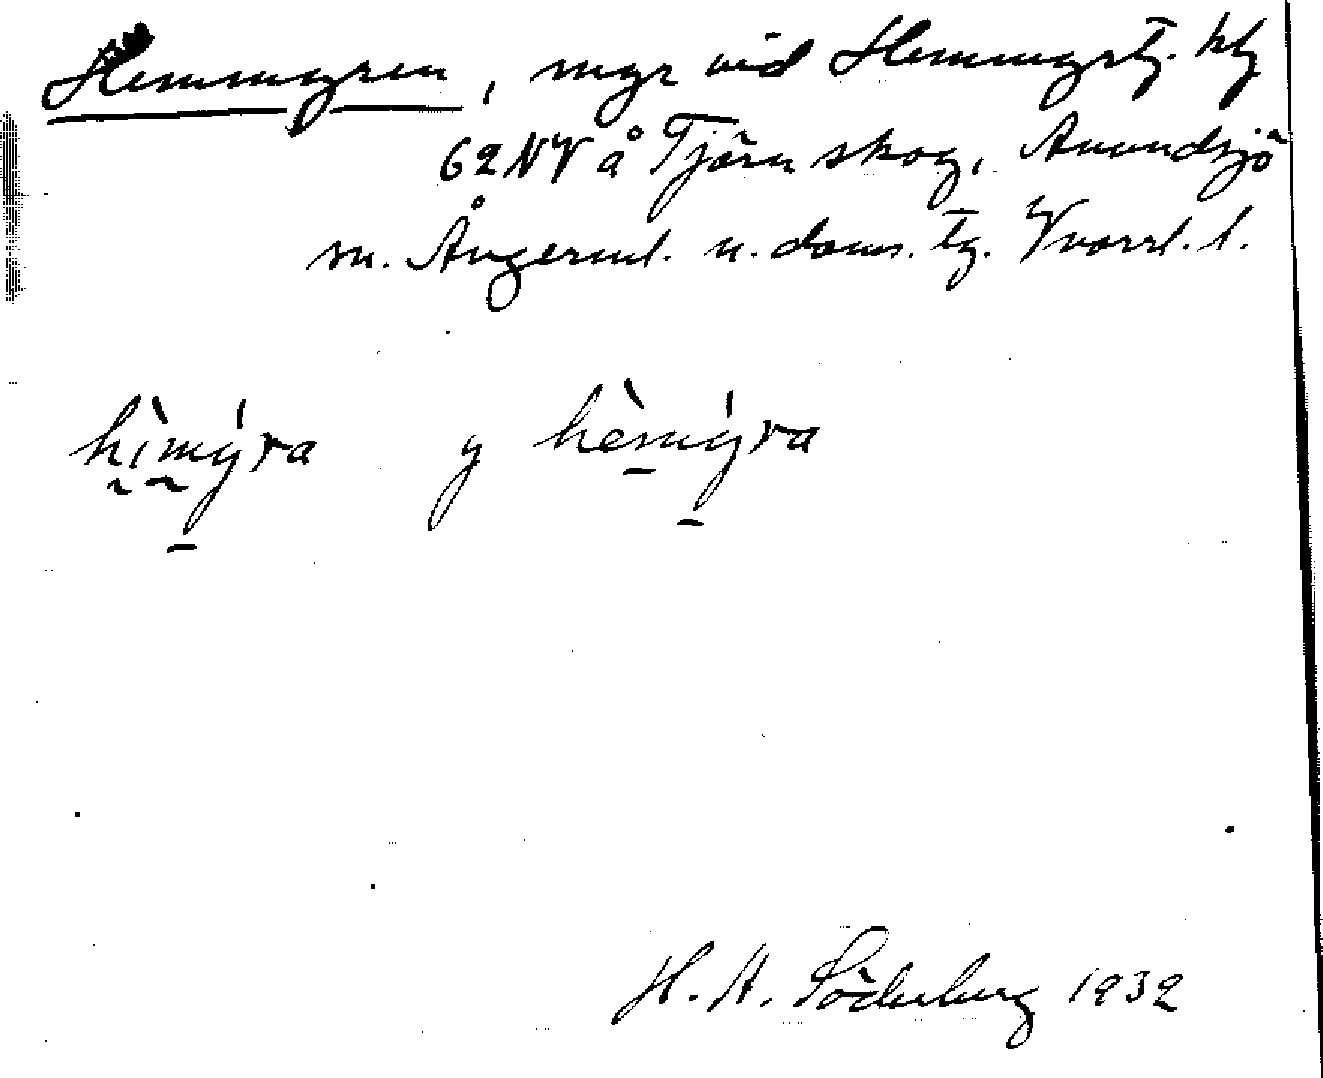 Hemmyren, myr vid Hemmyrstj. kbl
62NV å Tjärn skog, Anundsjö
sn. Ångerml. n. doms. tg. Västernorrl. l.
hìmýra y hèmýra
H. A. Söderberg 1932